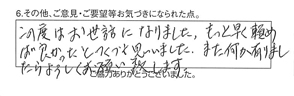 6.その他、ご意見・ご要望等お気づきになられた点。
この度はお世話になりました。もっと早く頼め
ば良かったとつくづく思いました。また何かありまし
たらよろしくお願い致します。
ご協力ありがとうございました。